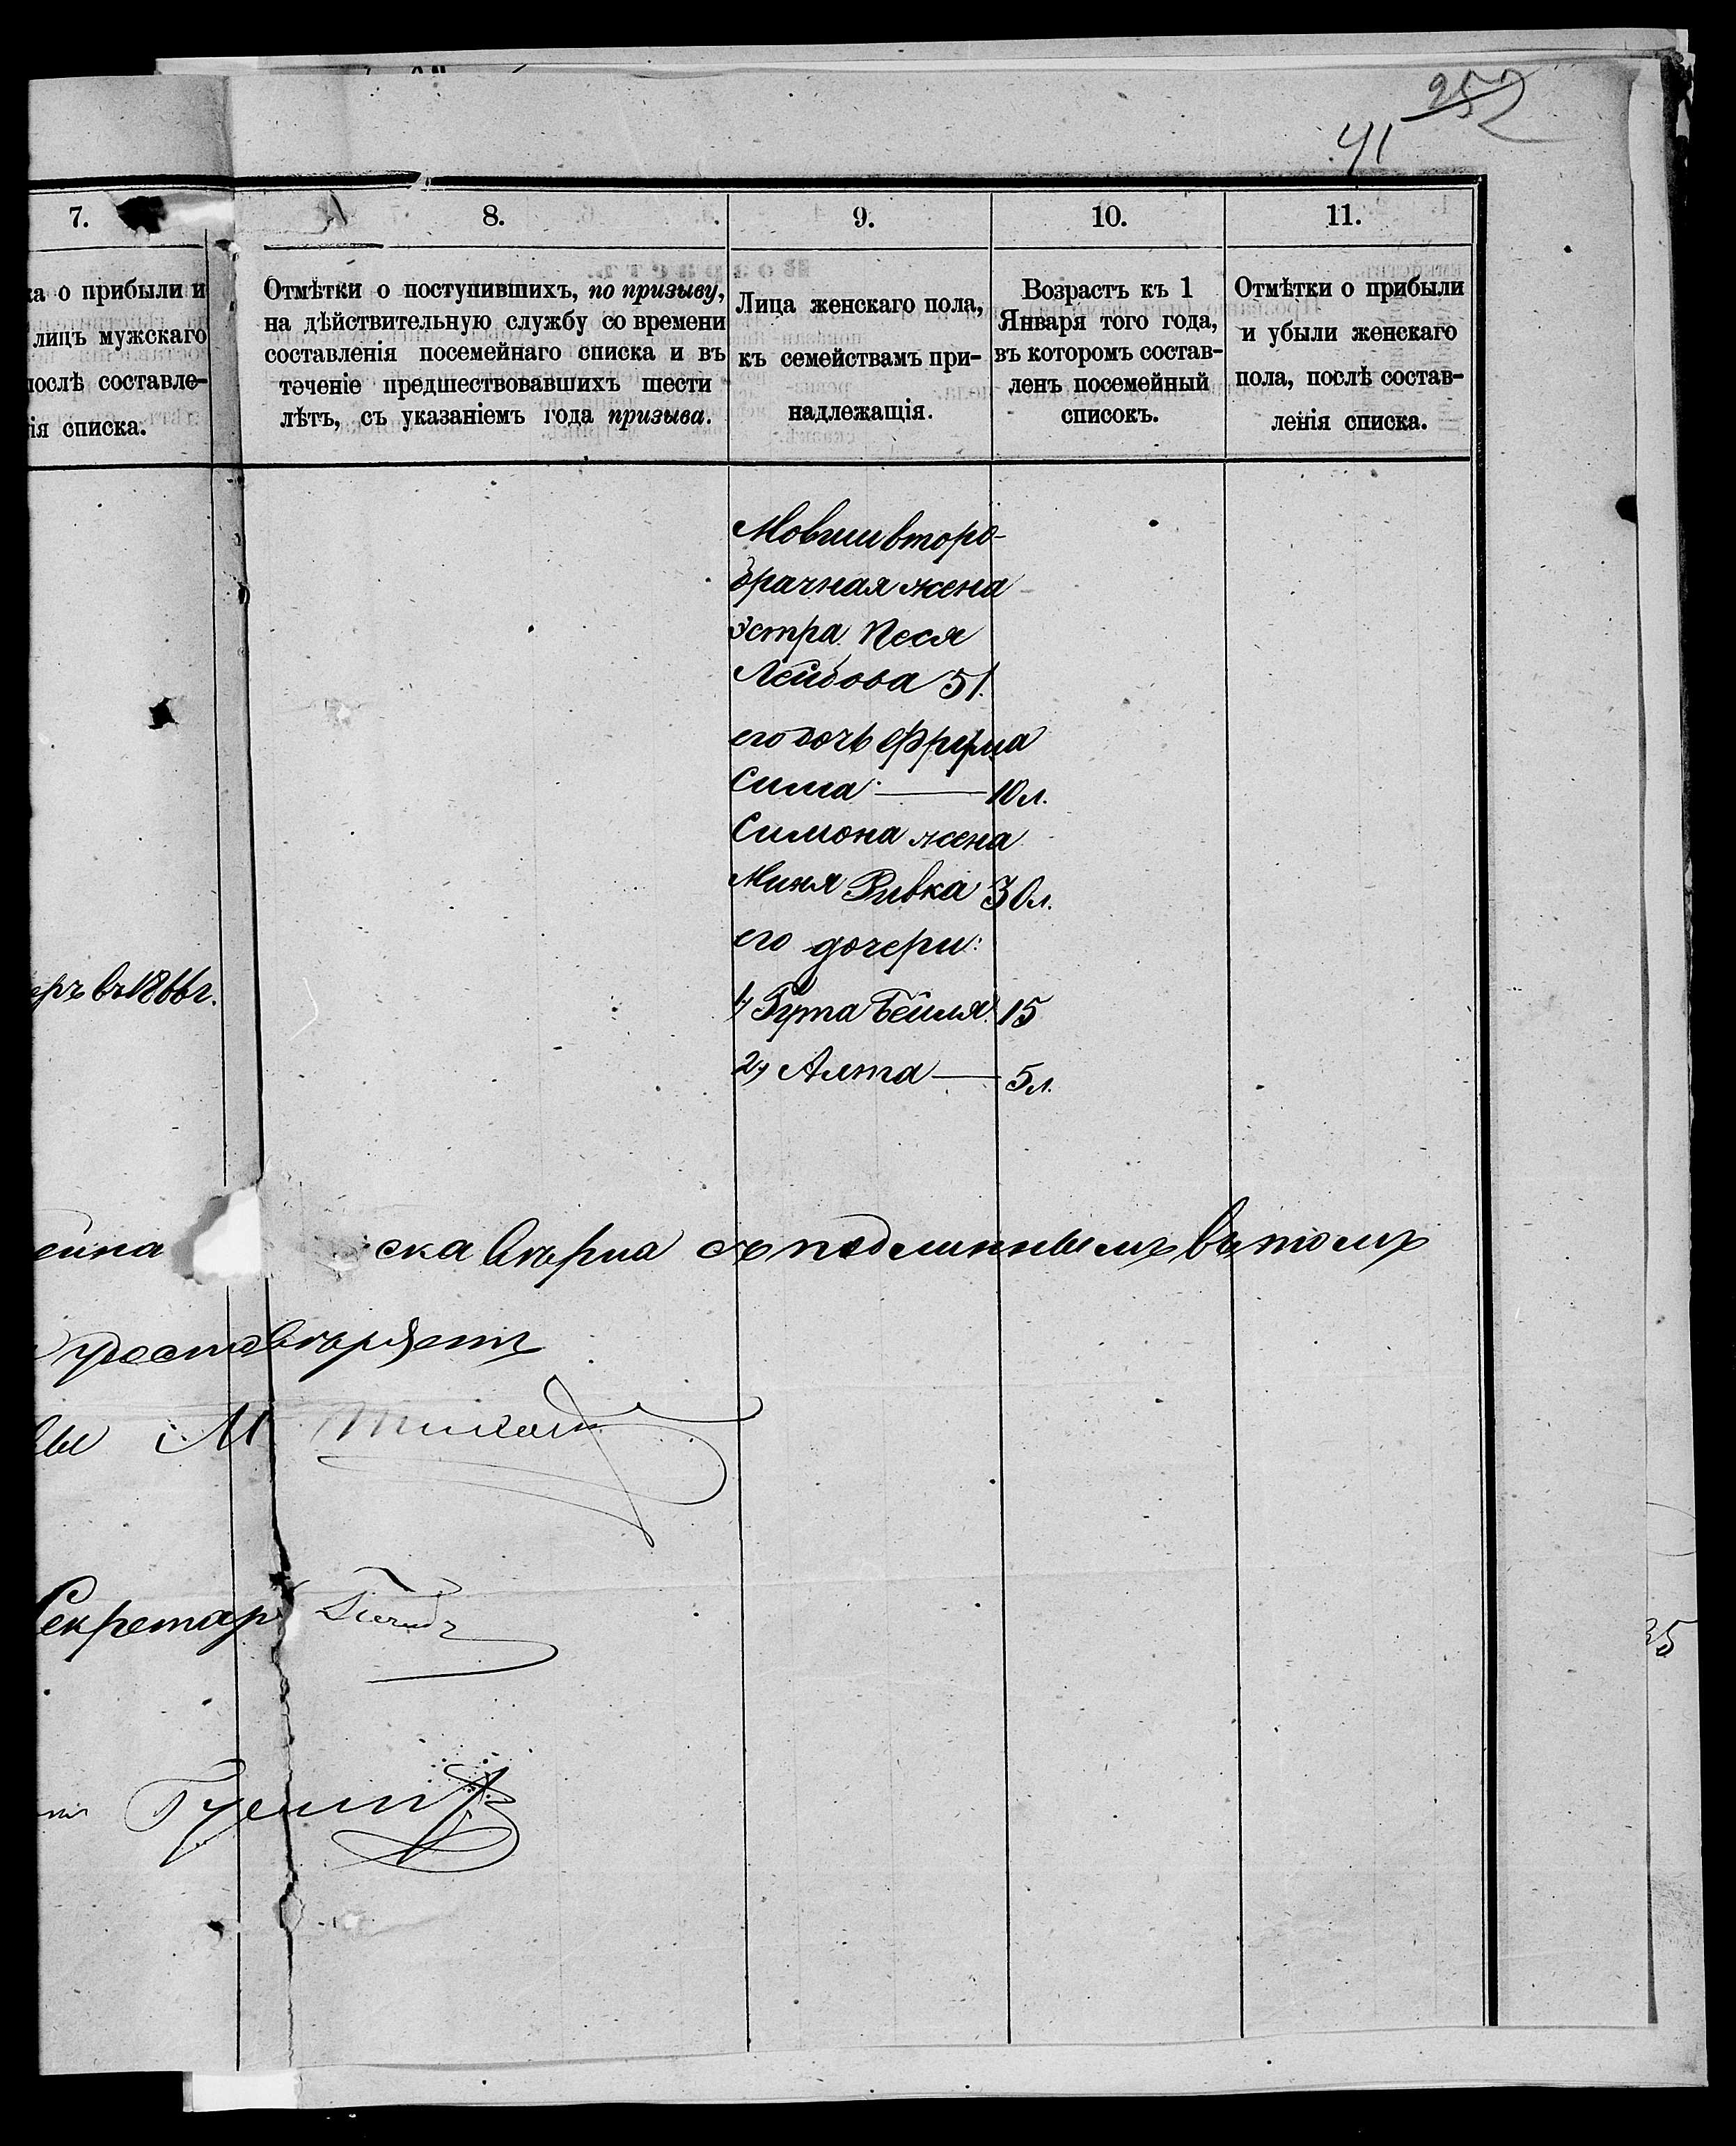 252
41
7.
8.
9.
10.
11.
ка о прибыли и
лицъ мужскаго
послѣ составле-
ія списка.
Отмѣтки о поступившихъ, по призыву,
на дѣйствительную службу со времени
составленія посемейнаго списка и въ
теченіе предшествовавшихъ шести
лѣтъ, съ указаніемъ года призыва.
Лица женскаго пола,
къ семействамъ при-
надлежащія.
Возрастъ къ 1
Января того года,
въ которомъ состав-
ленъ посемейный
списокъ.
Отмѣтки о прибыли
и убыли женскаго
пола, послѣ состав-
ленія списка.
Мовши второ-
брачная жена
Эстра Песя
Лейбова 51.
его дочь Фрума
Сима — 10 л.
Симона жена
Миня Ривка 30 л.
его дочери:
1, Гута Бейля 15
2, Алта — 5 л.
еръ въ 1866 г.
ска вѣрна съ подлиннымъ въ томъ
удостовѣряетъ
вы М
Секретарь
35